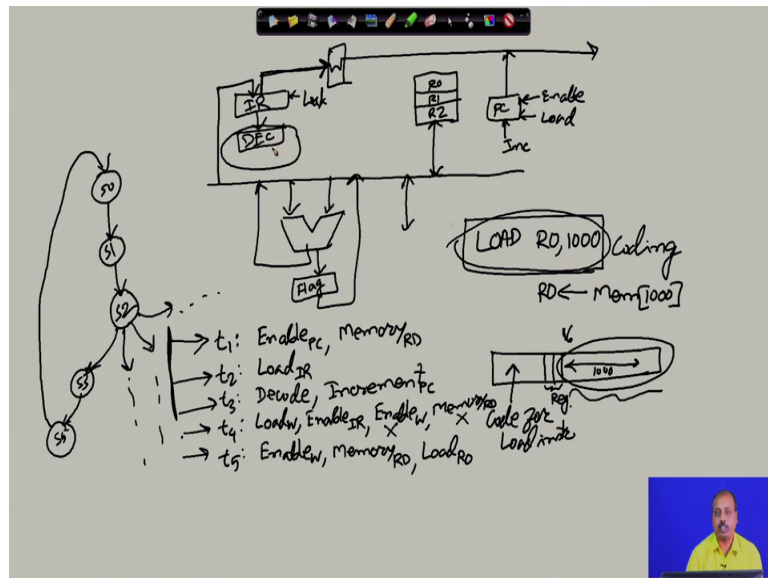 W
IR
Load
DEC
R0
R1
R2
PC
Enable
Load
Inc
Flag
LOAD R0,1000
Coding
R0 ← Mem[1000]
16
1000
Reg.
Code for
Load instn
S0
S1
S2
S3
S4
t1: Enable PC, Memory RD
t2: Load IR
t3: Decode, Increment PC
t4: Load W, Enable IR, Enable W, Memory RD
x x
t5: Enable W, Memory RD, Load R0